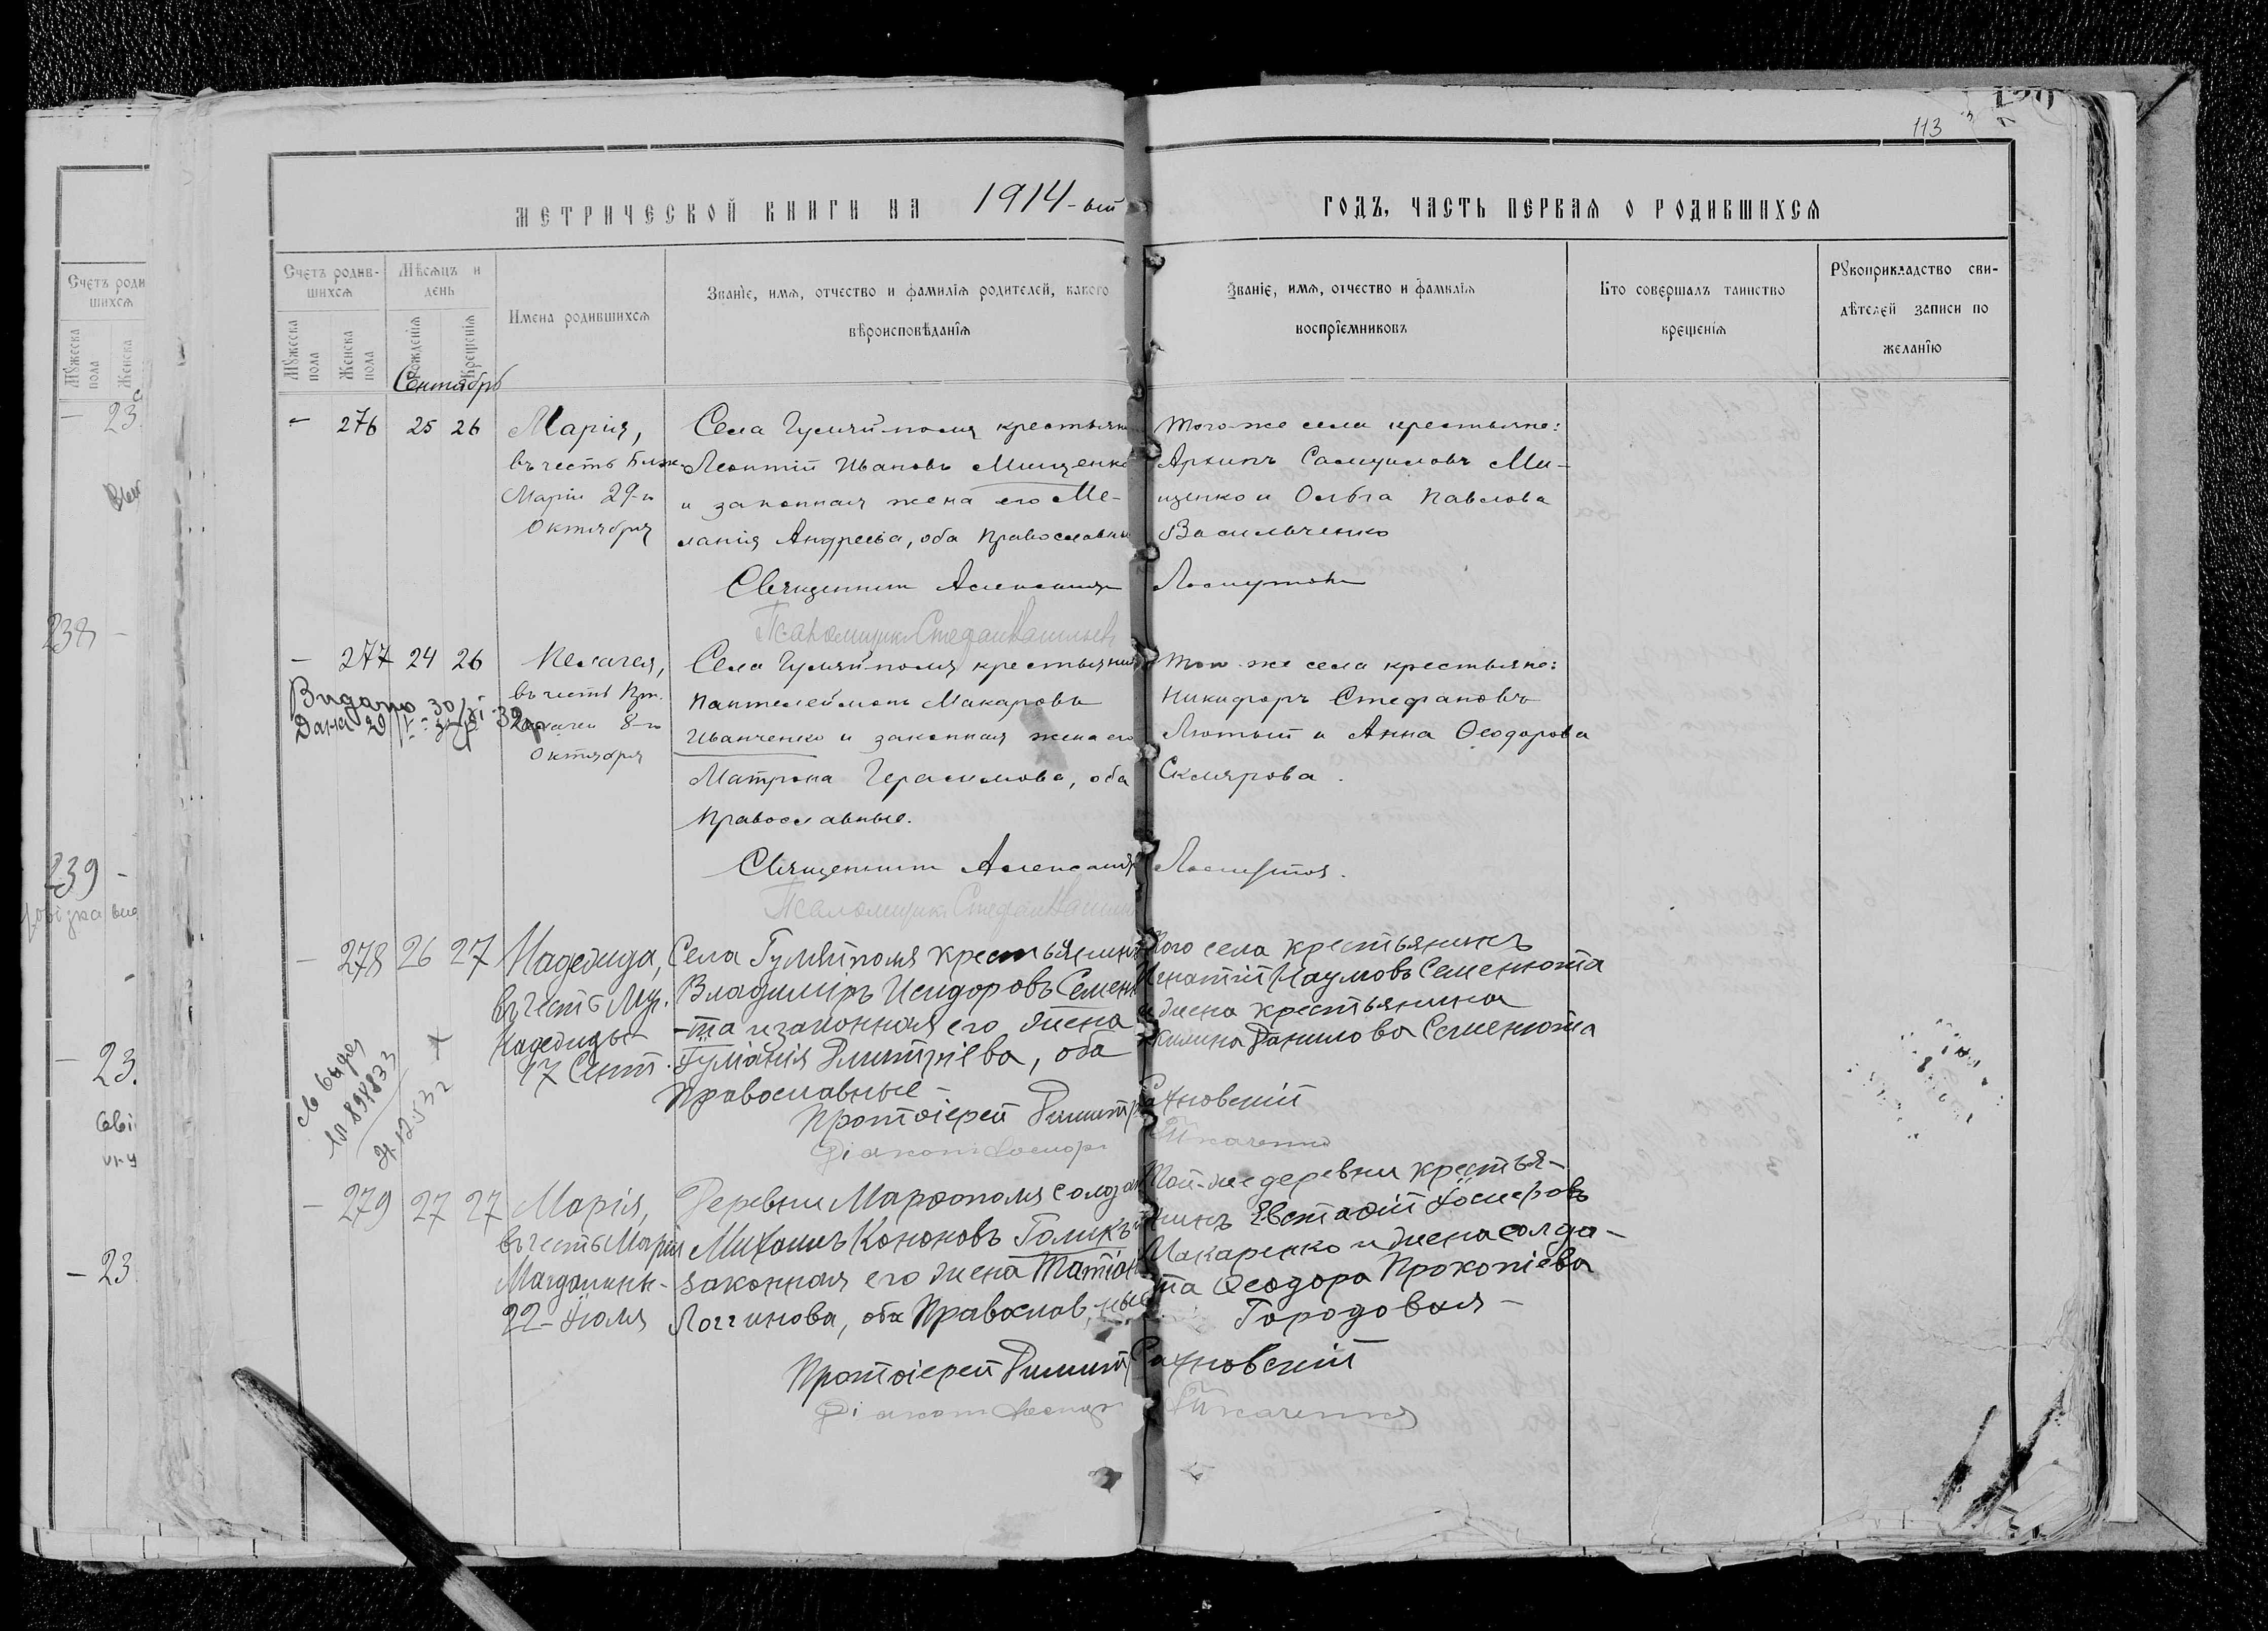 113
МЕТРИЧЕСКОЙ КНИГИ НА 1914-ый ГОДЪ, ЧАСТЬ ПЕРВАЯ О РОДИВШИХСЯ
Счетъ родив-
шихся
Мужеска пола
Женска пола
Мѣсяцъ и
день
Рожденія
Крещенія
Имена родившихся
Званіе, имя, отчество и фамилія родителей, какого
вѣроисповѣданія
Званіе, имя, отчество и фамилія
воспріемниковъ
Кто совершалъ таинство
крещенія
Рукоприкладство сви-
дѣтелей записи по
желанію
Сентябрь
- 276 25 26
Марія,
въ честь Блж.
Маріи 29-го
Октября
Села Гуляйполя крестьян
Леонтій Ивановъ Мищенко
и законная жена его Ме-
ланія Андреева, оба Православны
Того-же села крестьяне:
Архипъ Самуиловъ Ми-
щенко и Ольга Павлова
Васильченко
Священникъ Александръ
Псаломщикъ Стефанъ
- 277 24 26
Пелагея,
въ честь Прп.
Пелагеи 8-го
Октября
Видано 30/XI 32
Села Гуляйполя крестьянинъ
Пантелеймонъ Макаровъ
Иванченко и законная жена его
Матрона Герасимова, оба
Православные.
Того-же села крестьяне:
Никифоръ Стефановъ
Лютый и Анна Ѳеодорова
Склярова.
Священникъ Александръ
Псаломщикъ Стефанъ
- 278 26 27
Надежда,
въ честь Му.
Надежды-
17 Сент.
Села Гуляйполя крестьянинъ
Владиміръ Исидоровъ Семеню
-та и законная его жена
Гуліанія Димитріева, оба
Православные-
Того села крестьянинъ
Игнатій Наумовъ Семенюта
и жена крестьянина
Акилина Данилова Семенюта
Протоіерей Димитр Сахновскій
Діаконъ Ткаченко
- 279 27 27
Марія,
въ честь Маріи
Магдалины-
22-Іюля
Деревни Маріополя солдатъ
Михаилъ Кононовъ Голикъ и
законная его жена Татіана
Логгинова, оба Православ-ные
Той-же деревни крестья-
нинъ Евстафій Іосифовъ
Макаренко и жена солда-
та Ѳеодора Прокопіева
Городовая-
Протоіерей Димитр Сахновскій
Діаконъ Ткаченко
Счетъ роди
шихся
Мужеска пола
Женска
- 23
238 -
239 -
- 23.
- 23